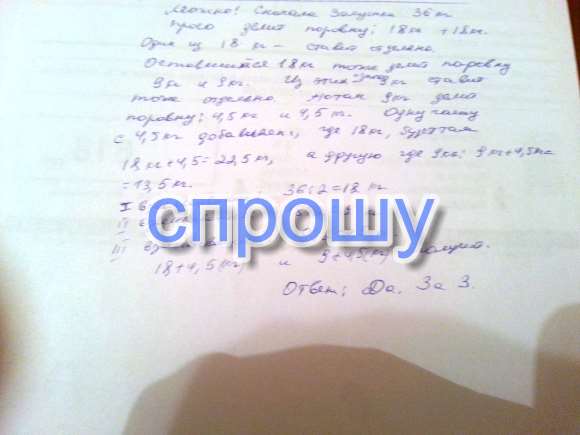 Можно! Сначала Золушка 36 кг
просо делит поровну; 18кг + 18кг.
Один из 18 кг – ставит отдельно.
Оставшиеся 18 кг тоже делит поровну
9кг и 9кг. Из этих 9кг ставит
тоже отдельно. Потом 9кг делит
поровну; 4,5 кг и 4,5 кг. Одну часть
с 4,5 кг где 18кг, будет там
18 кг + 4,5 = 22,5 кг, а другую где 9кг: 9 кг + 4,5кг=
= 13,5 кг. 36:2=18 кг
I
II
III
18+4,5(кг) и 9+4,5(кг)
спрошу
Ответ; Да. За 3.